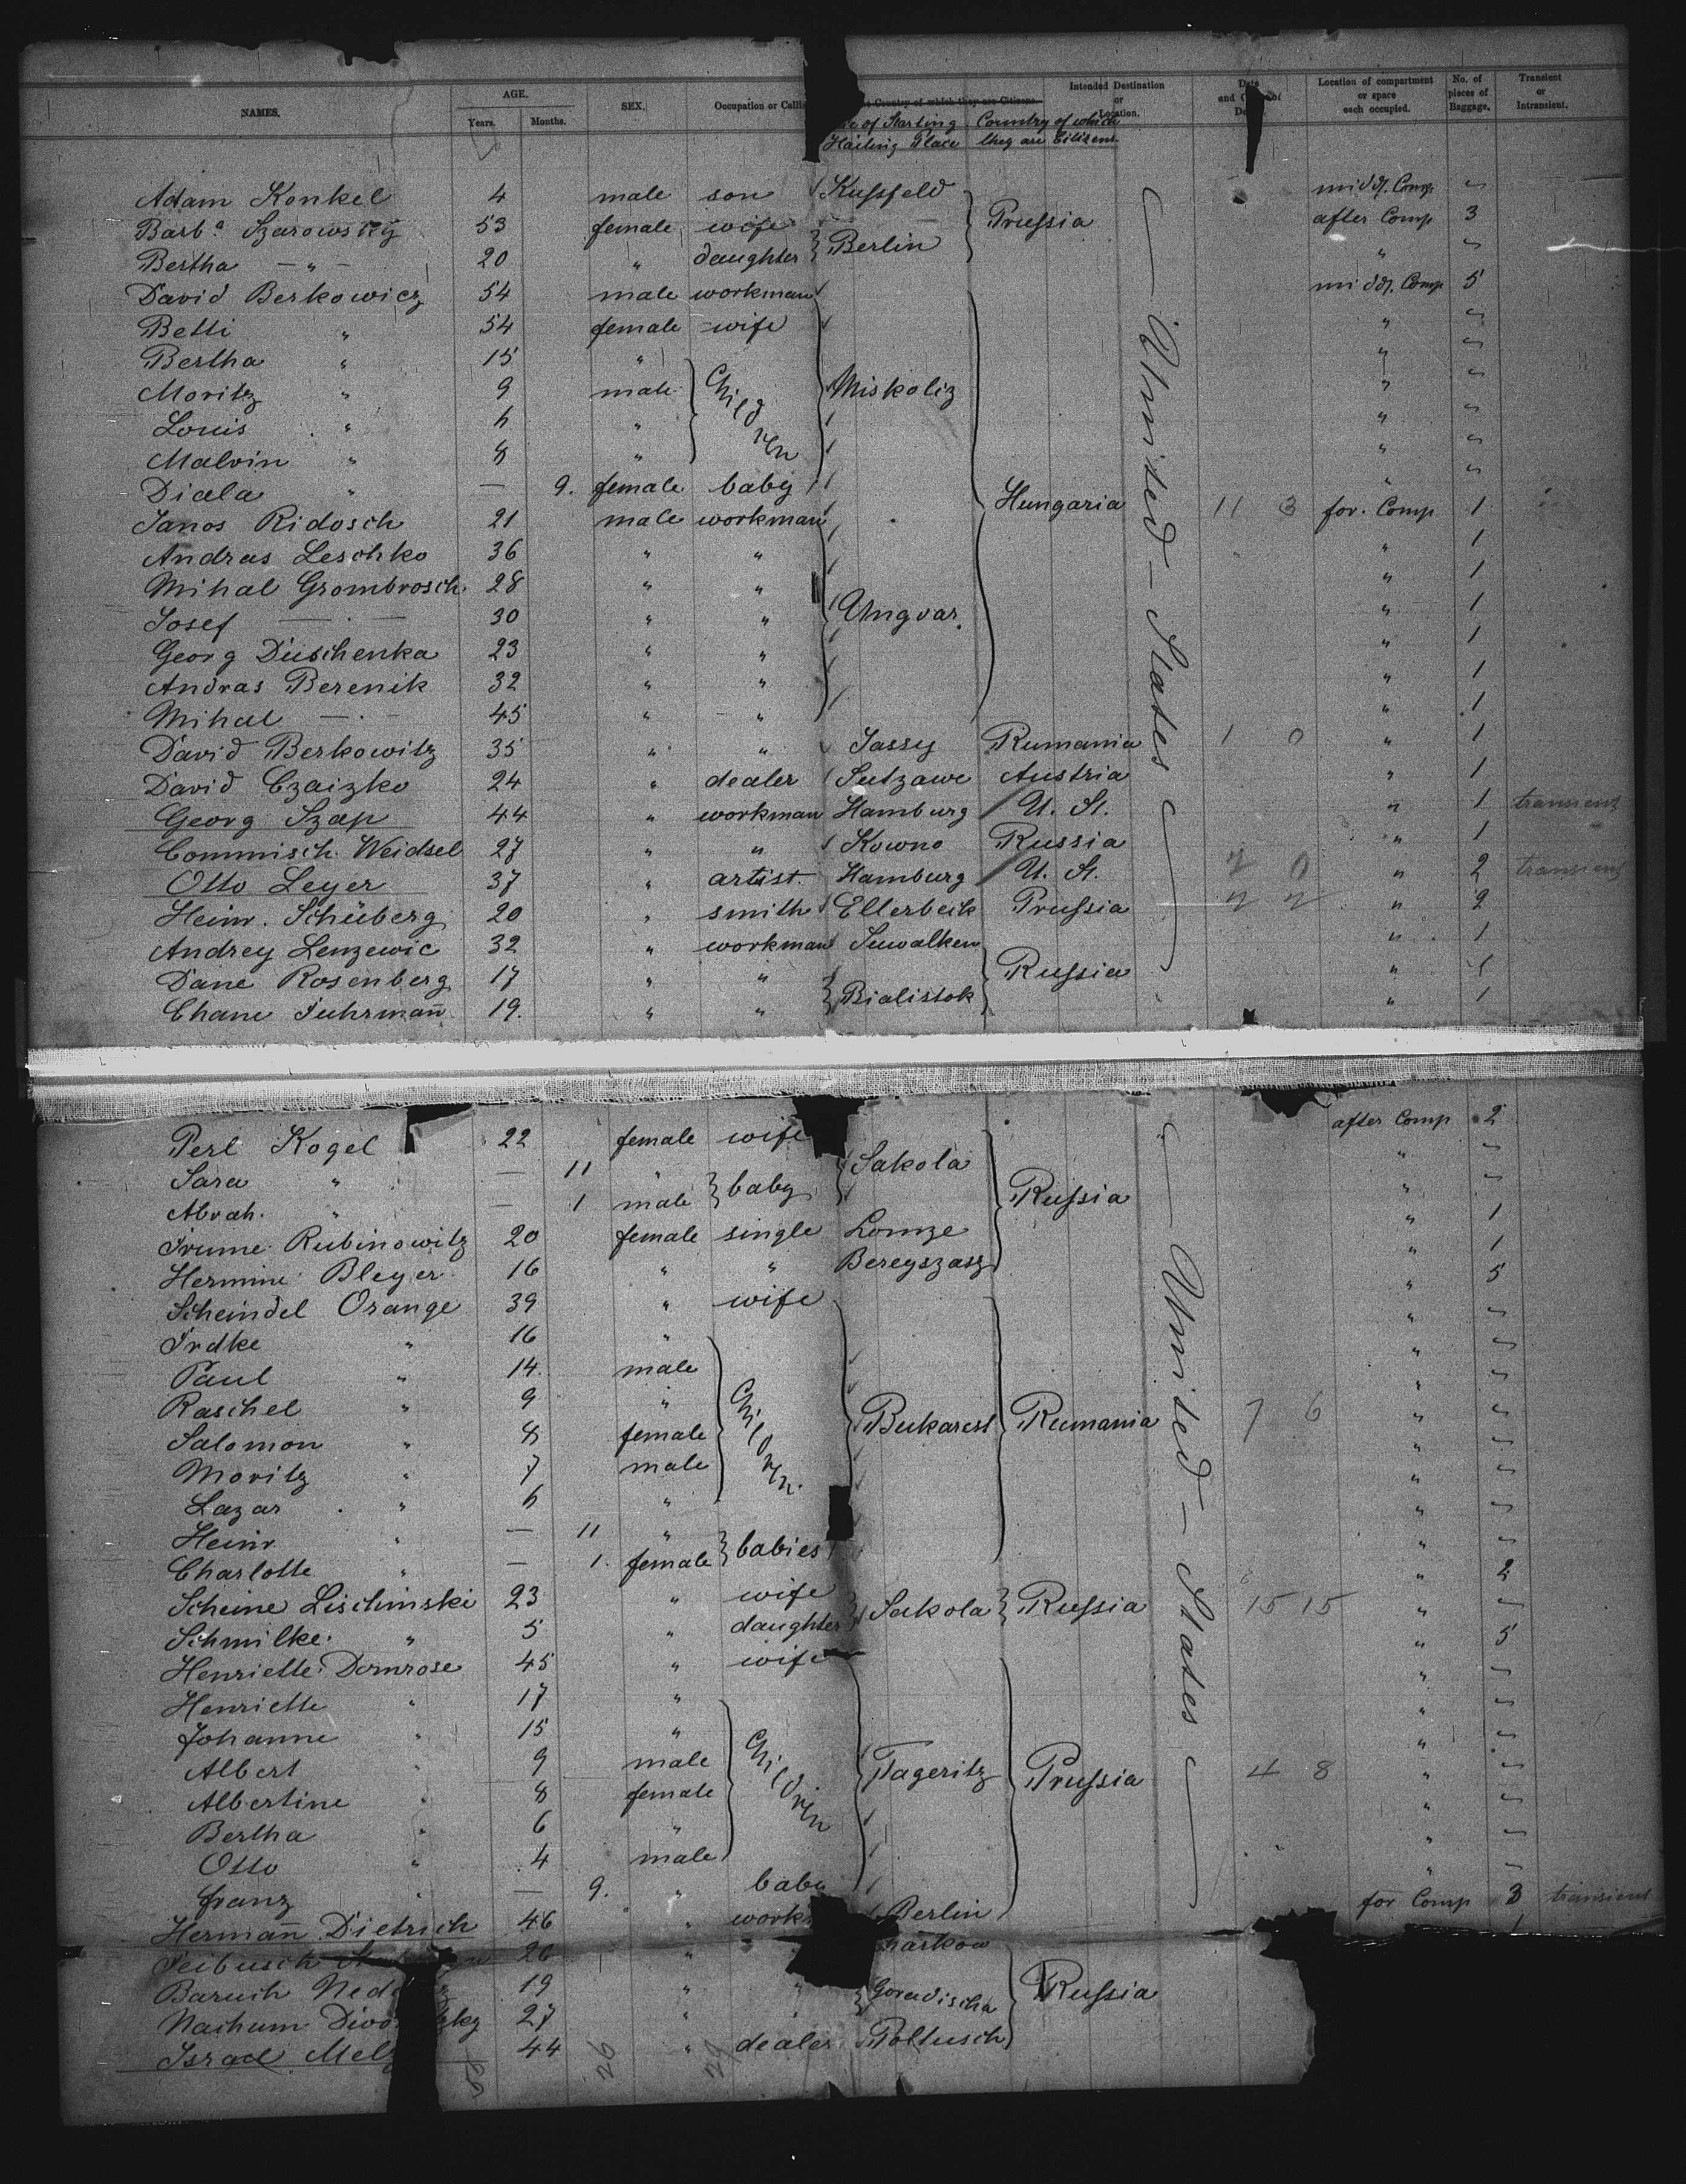 NAMES. AGE. Years. Months. SEX. Occupation or Calli Country of which they are Citizens. Intended Destination or Location. Date and of Location of compartment or space each occupied. No. of pieces of Baggage. Transient or Intransient.
of Starting Country of which
Hailing Place they are Citizens
Adam Konkel 4 male son Kussfeld midd. Comp "
Barba Szarowsky 53 female wife Berlin Prussia after Comp 3
Bertha — " — 20 " daughter " "
David Berkowicz 54 male workman midd. Comp 5
Betti " 54 female wife " "
Bertha " 15 " Children " "
Moritz " 9 male Miskoliz " "
Louis " 6 " " "
Malvin " 8 " " "
Diala " — 9. female baby " "
Janos Ridosch 21 male workman Hungaria 11 3 for. Comp 1
Andras Leschko 36 " " " 1
Mihal Grombrosch. 28 " " " 1
Josef — " — 30 " " Ungvar. " 1
Georg Duschenka 23 " " " 1
Andras Berenik 32 " " " 1
Mihal — " — 45 " " " 1
David Berkowitz 35 " " Jassy Rumania 1 0 " 1
David Czaizko 24 " dealer Sutzawe Austria " 1
Georg Szap 44 " workman Hamburg U. St. " 1 transient
Commisch Weidsel 27 " " Kowno Russia " 1
Otto Leyer 37 " artist. Hamburg U. St. " 2 transient
Heinr. Schüberg 20 " smith Ellerbeik Prussia " 2
Andrey Lenzewic 32 " workman Suwalken Russia " 1
Dane Rosenberg 17 " " Bialistok " 1
Chane Fuhrmann 19. " " " 1
United - States
Perl Kogel 22 female wife Sakola Russia after Comp 2
Sara " — 11 " baby " "
Abrah. " — 1 male " "
Frume Rubinowitz 20 female single Lomze " 1
Hermine Bleyer 16 " " Beregszasz " 1
Scheindel Orange 39 " wife " 5
Frdke " 16 " Children " "
Paul " 14. male " "
Raschel " 9 " Bukarest Rumania 7 6 " "
Salomon " 8 female " "
Moritz " 7 male " "
Lazar " 6 " " "
Heinr. " — 11 " babies " "
Charlotte " — 1. female " "
Scheine Lischinski 23 " wife Sakola Russia 15 15 " 2
Schmilke " 5 " daughter " "
Henriette Dornrose 45 " wife " 5
Henriette " 17 " Children " "
Johanne " 15 " " "
Albert " 9 male Tageritz Prussia 4 8 " "
Albertine " 8 female " "
Bertha " 6 " " "
Otto " 4 male " "
Franz " — 9. " baby " "
Hermann Dietrich 46 " work Berlin for Comp 3 transient
Leibusch 26 " harkow 1
Baruch Ned 19 " " Goradischa Russia
Nachum 27 " "
Israel Mel 44 " dealer Poltusch
United - States